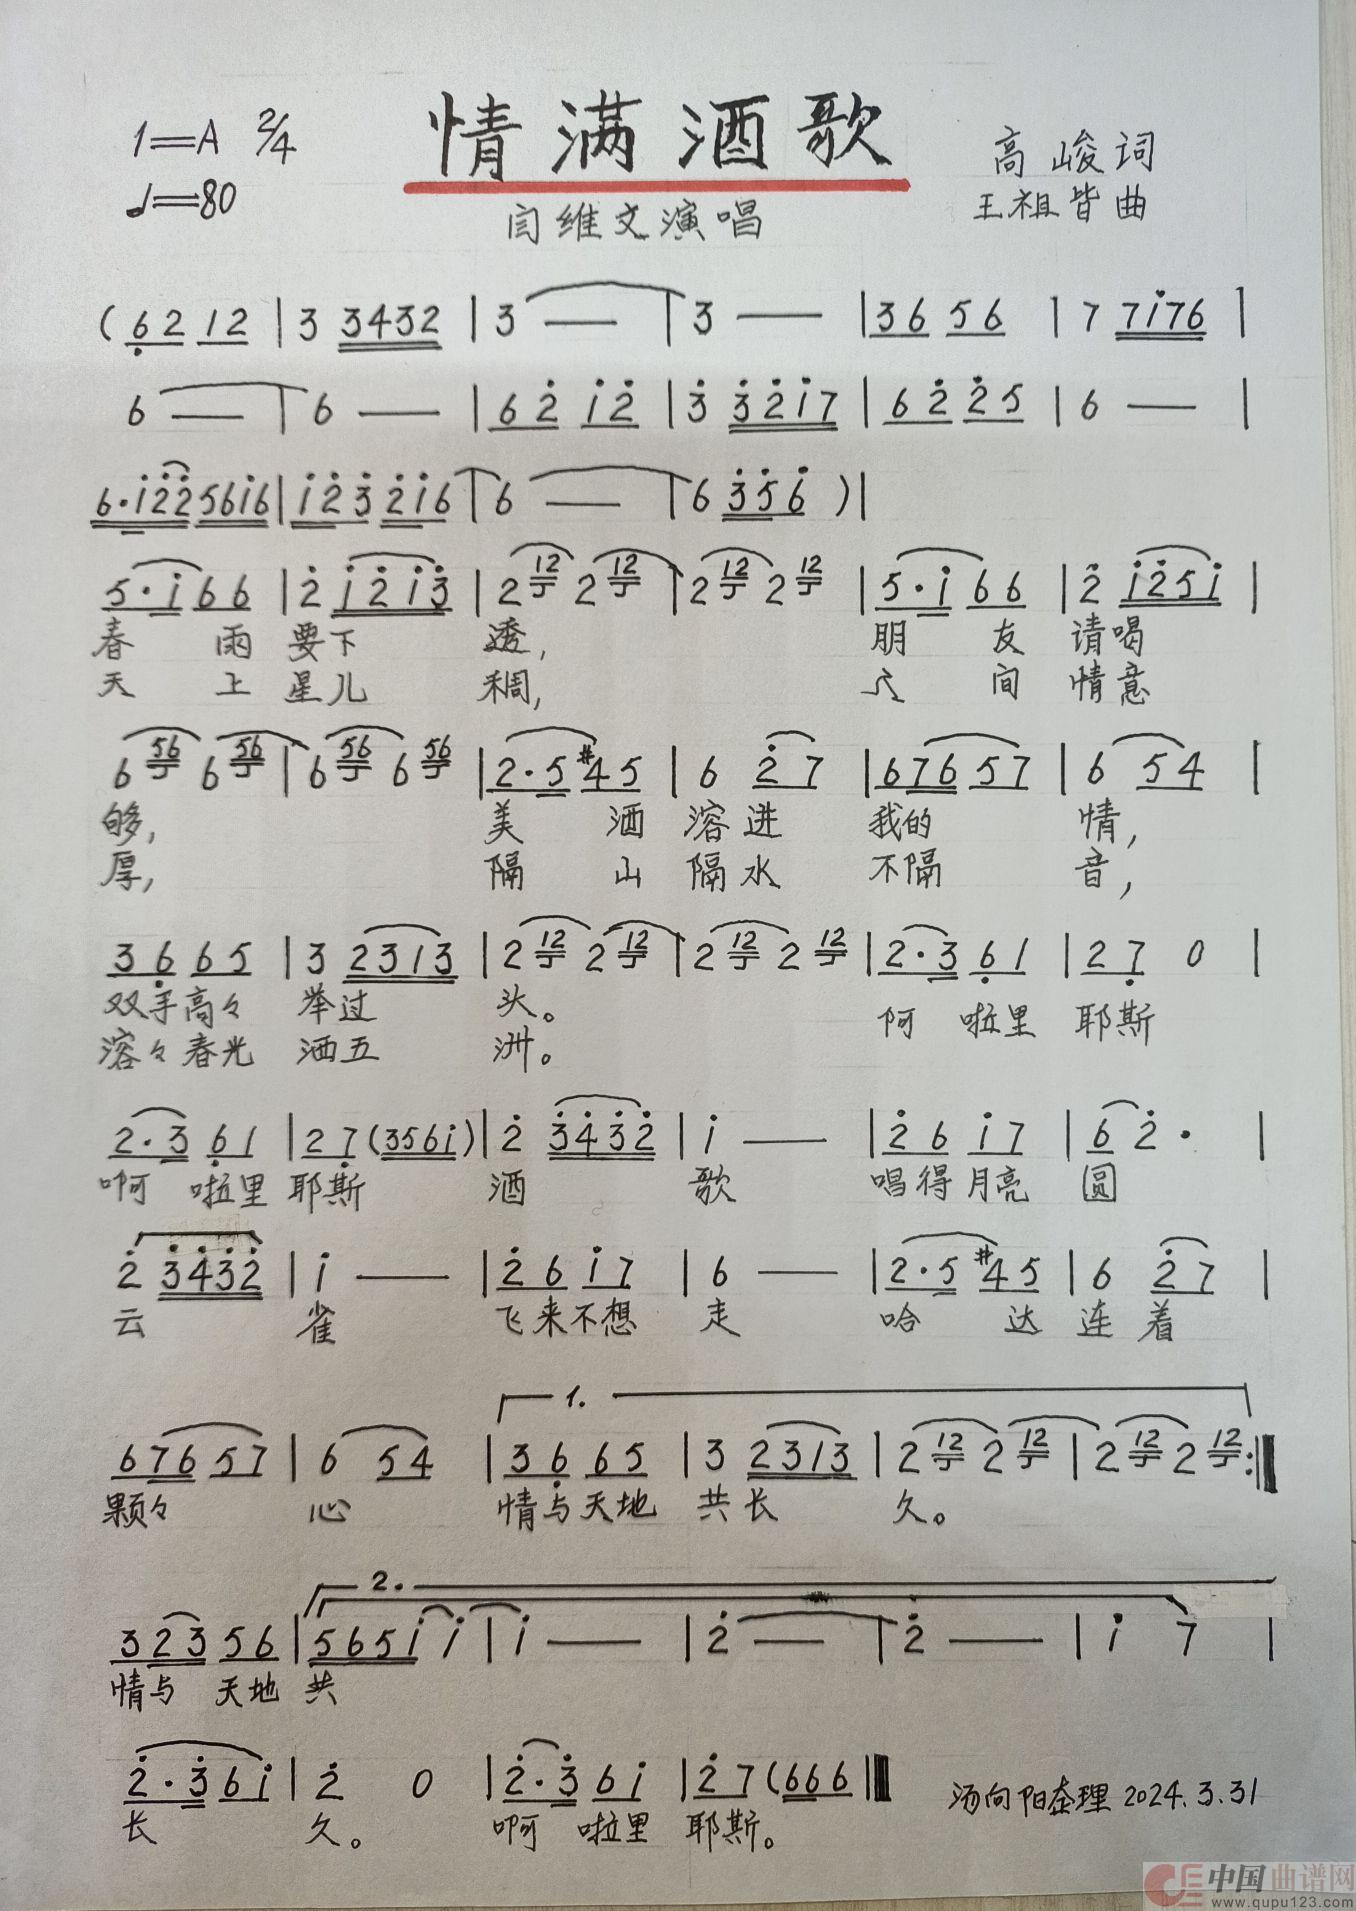 情满酒歌
1=A 2/4
♩=80
闫维文演唱
高峻词
王祖皆曲
(6̣2 12 | 3 3432 | 3 — | 3 — | 36 56 | 7 7i76 |
6 — | 6 — | 62̇ i2̇ | 3̇ 3̇2̇i7 | 62̇ 2̇5 | 6 — |
6·i2̇2̇ 56i6 | i2̇3̇ 2̇i6 | 6 — | 6 3̇5̇6̇ ) |
5·i 66 | 2̇ i2̇i3̇ | 2 12 2 12 | 2 12 2 12 | 5·i 66 | 2̇ i2̇5i |
春 雨 要下 透, 朋 友 请喝
天 上 星儿 稠, 人 间 情意
6 56 6 56 | 6 56 6 56 | 2·5 #45 | 6 2̇7 | 676 57 | 6 54 |
够, 美 酒 溶进 我的 情,
厚, 隔 山 隔水 不隔 音,
36̣ 65 | 3 2313 | 2 12 2 12 | 2 12 2 12 | 2·3 6̣1 | 27̣ 0 |
双手高々 举过 头。 阿 啦里 耶斯
溶々春光 洒五 洲。
2·3 6̣1 | 27̣ (356i) | 2̇ 3̇4̇3̇2̇ | i — | 2̇6 i7 | 6 2̇· |
啊 啦里 耶斯 酒 歌 唱得月亮 圆
2̇ 3̇4̇3̇2̇ | i — | 2̇6 i7 | 6 — | 2̇·5 #45 | 6 2̇7 |
云 雀 飞来不想 走 哈 达 连着
1.
676 57 | 6 54 | 36̣ 65 | 3 2313 | 2 12 2 12 | 2 12 2 12 :|
颗々 心 情与天地 共长 久。
2.
323 56 | 565i i | i — | 2̇ — | 2̇ — | i 7 |
情与 天地 共
2̇·3̇ 6i | 2̇ 0 | 2̇·3̇ 6i | 2̇7 (666 |
长 久。 啊 啦里 耶斯。
汤向阳整理 2024.3.31
中国曲谱网
www.qupu123.com